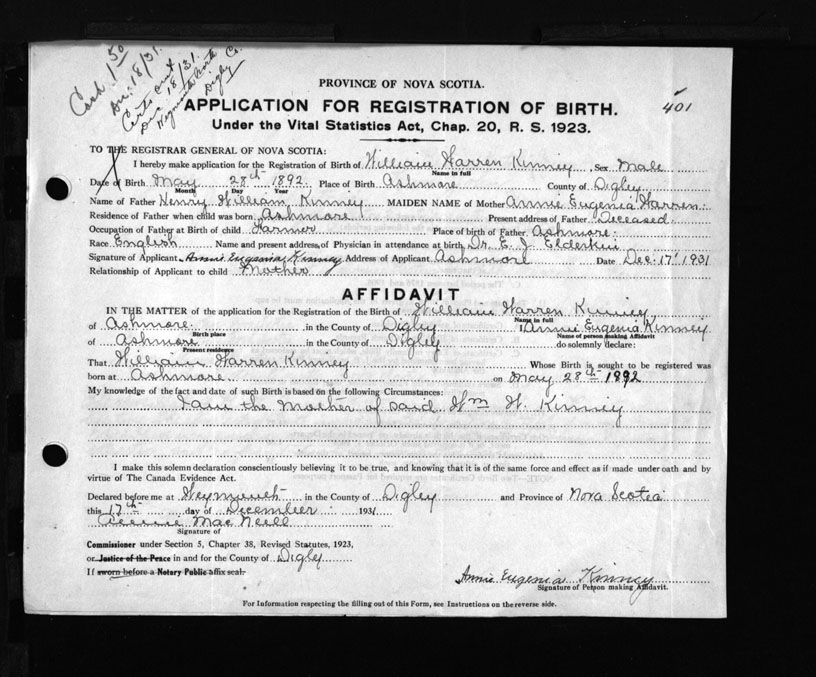 Cash 1.50
Dec. 18/31.
Certs sent
Dec 18/31.
Weymouth North
Digby Co.
401
PROVINCE OF NOVA SCOTIA.
APPLICATION FOR REGISTRATION OF BIRTH.
Under the Vital Statistics Act, Chap. 20, R. S. 1923.
TO THE REGISTRAR GENERAL OF NOVA SCOTIA:
I hereby make application for the Registration of Birth of William Warren Kinney Sex Male
Name in full
Date of Birth May 28th 1892. Place of Birth Ashmore County of Digby
Month Day Year
Name of Father Henry William Kinney MAIDEN NAME of Mother Annie Eugenia Warren.
Residence of Father when child was born Ashmore Present address of Father Deceased.
Occupation of Father at Birth of child Farmer Place of birth of Father Ashmore.
Race English Name and present address of Physician in attendance at birth Dr. E. J. Elderkin
Signature of Applicant Annie Eugenia Kinney Address of Applicant Ashmore Date Dec. 17th 1931
Relationship of Applicant to child Mother
AFFIDAVIT
IN THE MATTER of the application for the Registration of the Birth of William Warren Kinney
Name in full
of Ashmore in the County of Digby I Annie Eugenia Kinney
Birth place Name of person making Affidavit
of Ashmore in the County of Digby do solemnly declare:
Present residence
That William Warren Kinney Whose Birth is sought to be registered was
born at Ashmore on May 28th 1892
My knowledge of the fact and date of such Birth is based on the following Circumstances:
I am the Mother of said Wm W. Kinney
I make this solemn declaration conscientiously believing it to be true, and knowing that it is of the same force and effect as if made under oath and by
virtue of The Canada Evidence Act.
Declared before me at Weymouth in the County of Digby and Province of Nova Scotia
this 17th day of December 1931
MacNeill
Signature of
Commissioner under Section 5, Chapter 38, Revised Statutes, 1923,
or Justice of the Peace in and for the County of Digby
If sworn before a Notary Public affix seal.
Annie Eugenia Kinney
Signature of Person making Affidavit.
For Information respecting the filling out of this Form, see Instructions on the reverse side.